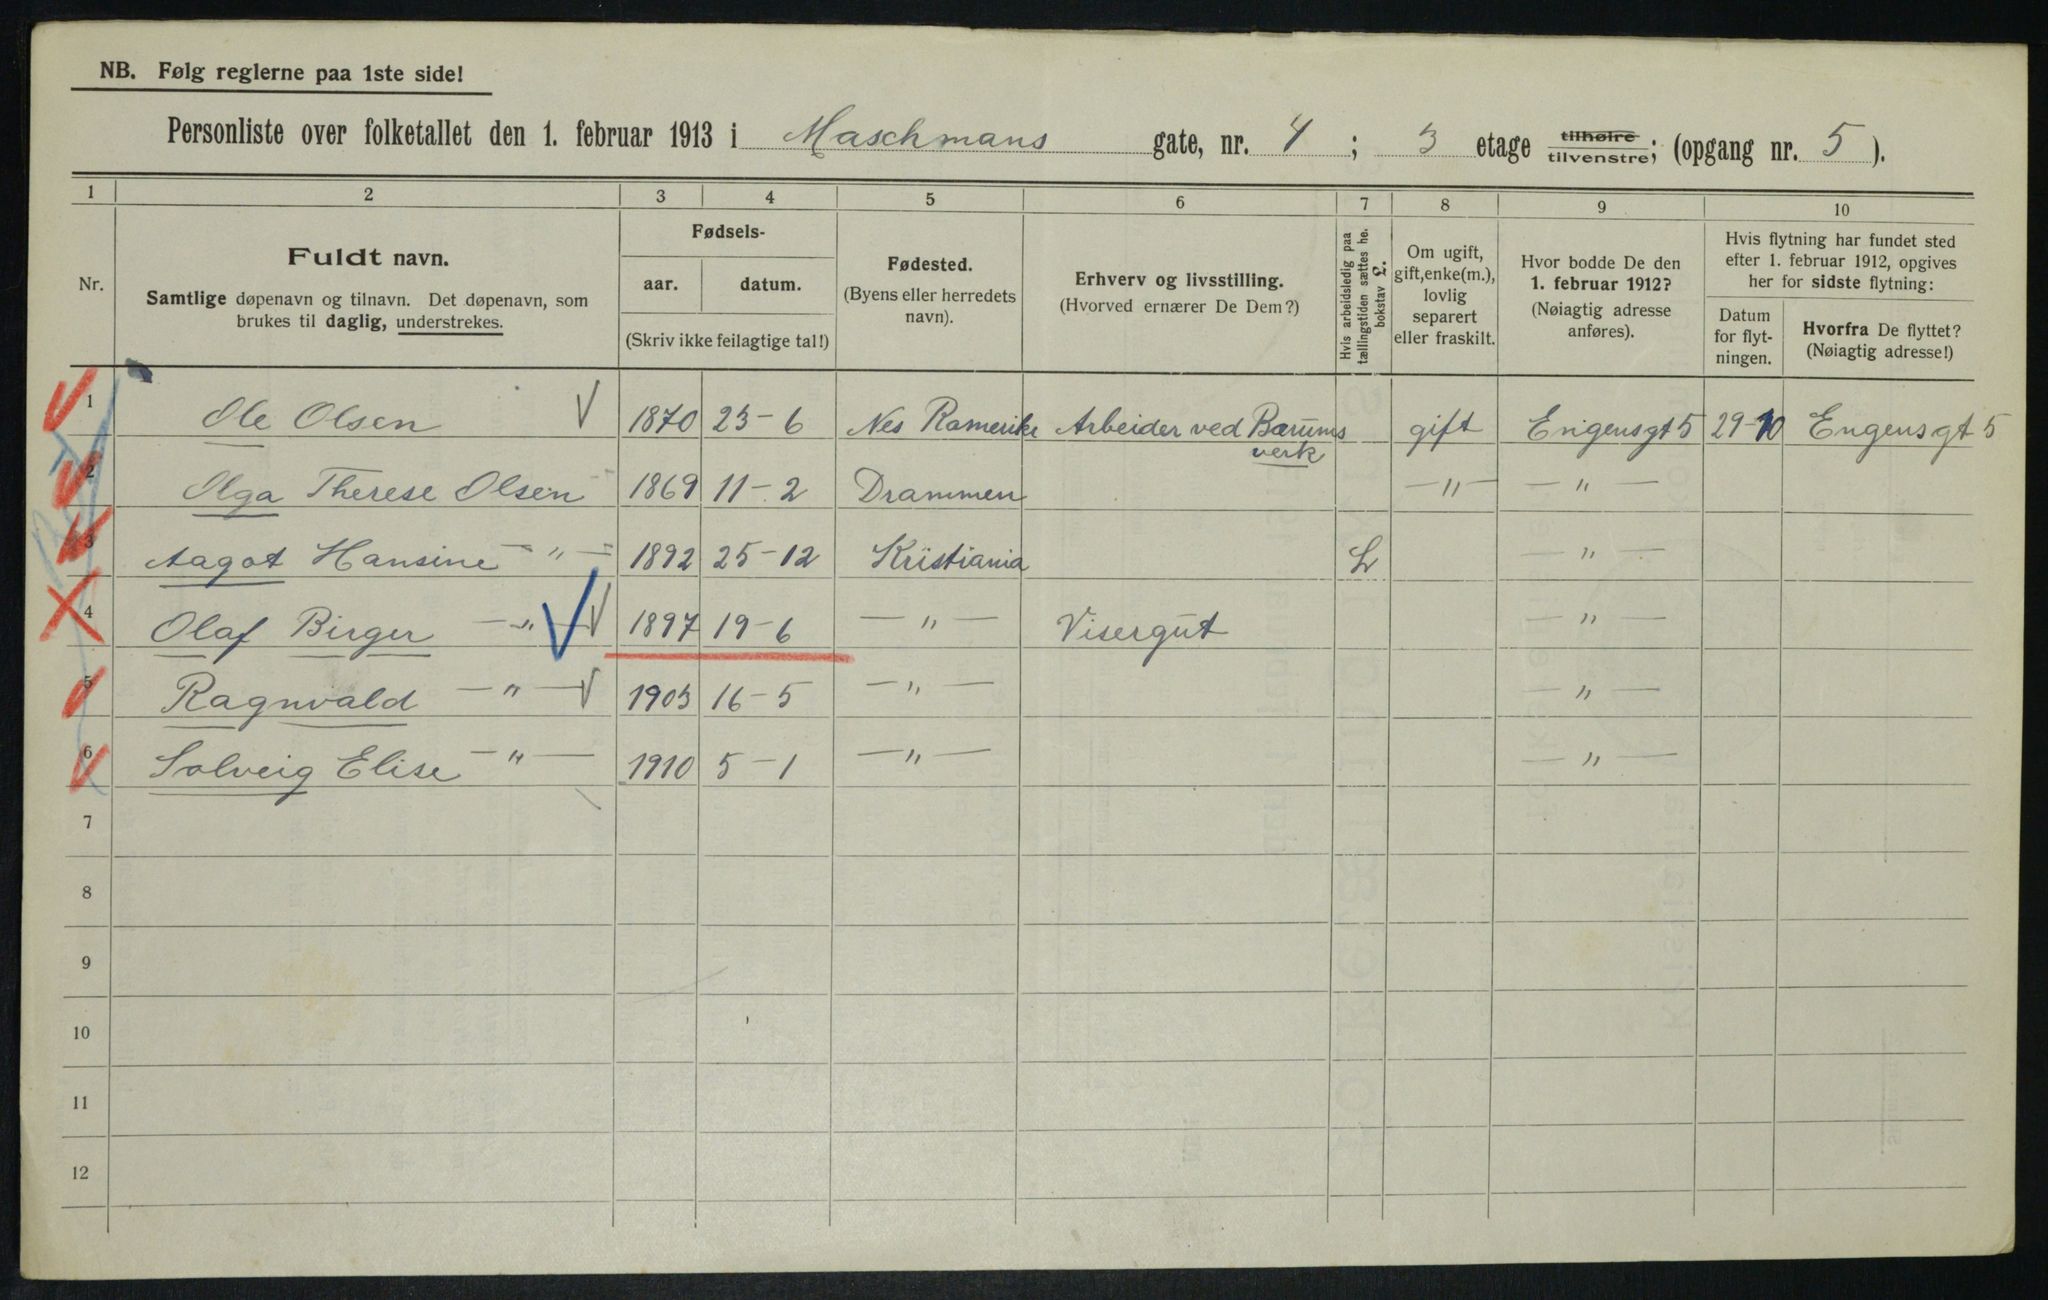 NB. Følg reglerne paa 1ste side!
Personliste over folketallet den 1. februar 1913 i Maschmans gate, nr. 4 ; 3 etage tilhøire tilvenstre; (opgang nr. 5 ).
1 2 3 4 5 6 7 8 9 10
Nr.
Fuldt navn.
Samtlige døpenavn og tilnavn. Det døpenavn, som
brukes til daglig, understrekes.
Fødsels-
aar. datum.
(Skriv ikke feilagtige tal!)
Fødested.
(Byens eller herredets
navn).
Erhverv og livsstilling.
(Hvorved ernærer De Dem?)
Hvis arbeidsledig paa
tællingstiden sættes he.
bokstav L.
Om ugift,
gift,enke(m.),
lovlig
separert
eller fraskilt.
Hvor bodde De den
1. februar 1912?
(Nøiagtig adresse
anføres).
Hvis flytning har fundet sted
efter 1. februar 1912, opgives
her for sidste flytning:
Datum
for flyt-
ningen.
Hvorfra De flyttet?
(Nøiagtig adresse!)
1 Ole Olsen 1870 23-6 Nes Romerike Arbeider ved Bærums gift Engensgt 5 29-10 Engensgt 5
verk
2 Olga Therese Olsen 1869 11-2 Drammen -"- -"-
3 Aagot Hansine -"- 1892 25-12 Kristiania L -"-
4 Olaf Birger -"- 1897 19-6 -"- Visergut -"-
5 Ragnvald -"- 1903 16-5 -"- -"-
6 Solveig Elise -"- 1910 5-1 -"- -"-
7
8
9
10
11
12